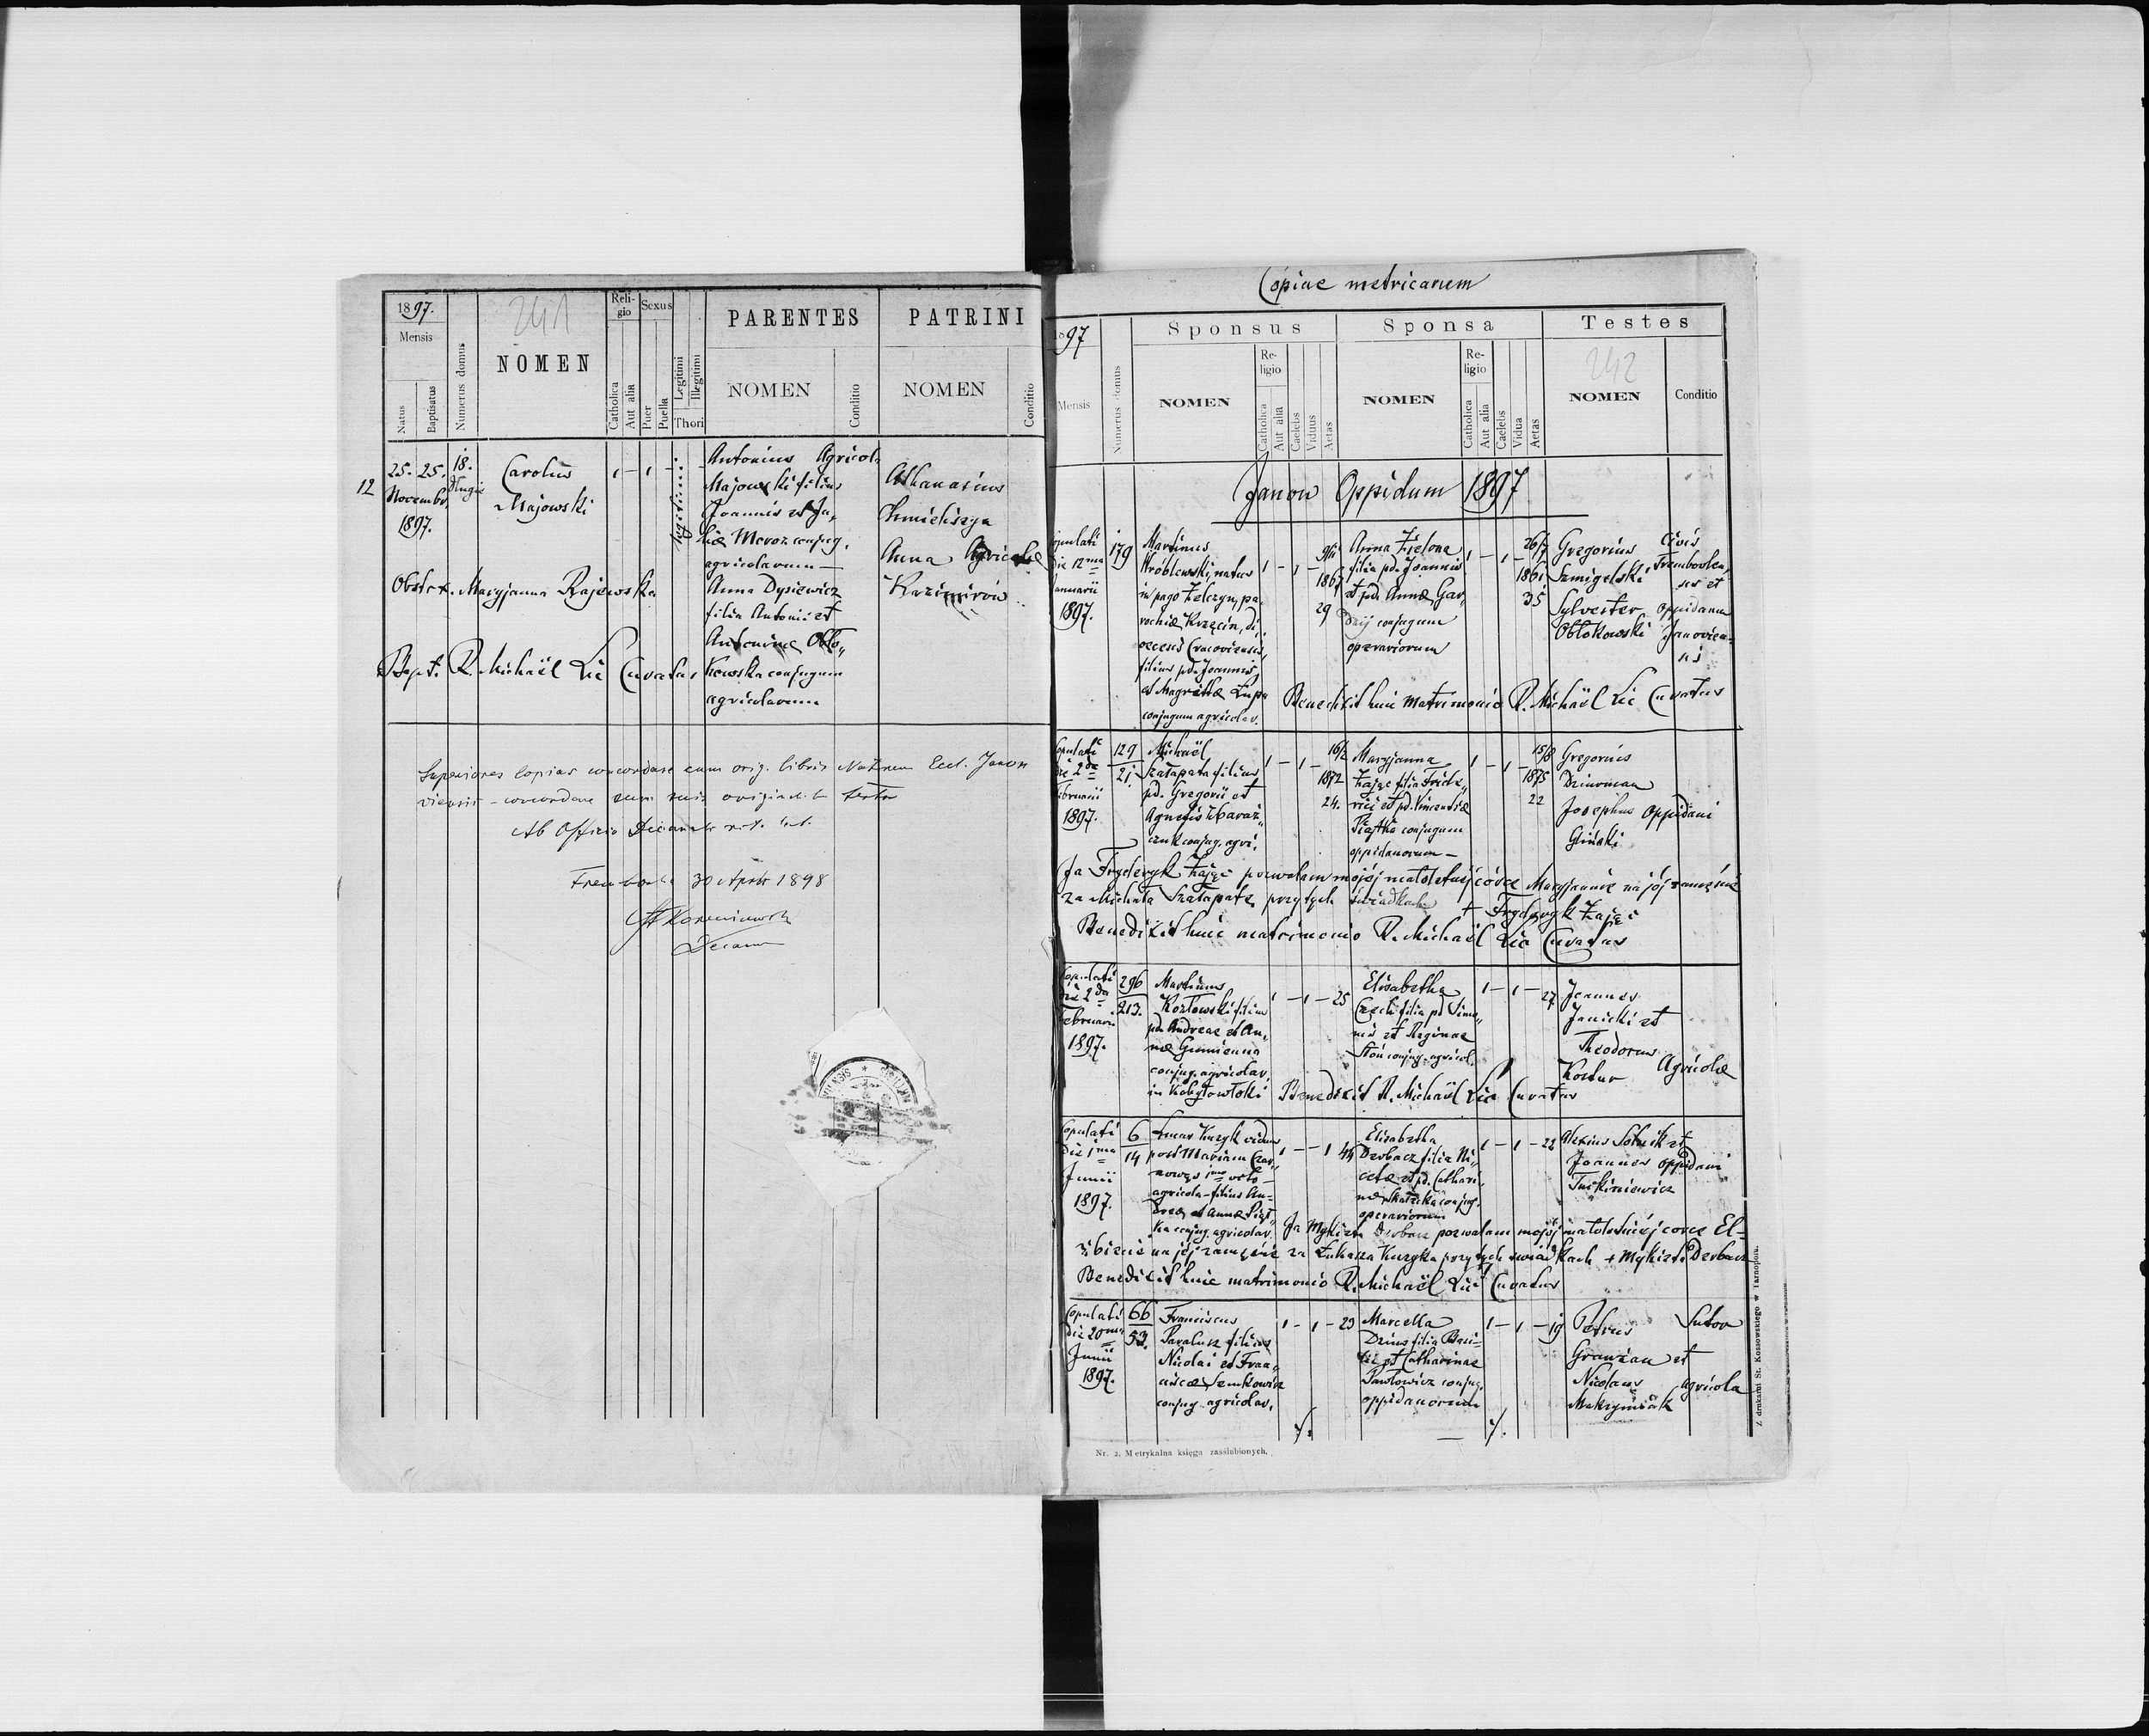 1897.
Mensis
Natus
Baptisatus
Numerus domus
241
NOMEN
Religio
Catholica
Aut alia
Sexus
Puer
Puella
Legitimi
Illegitimi
Thori
PARENTES
NOMEN
Conditio
PATRINI
NOMEN
Conditio
12
25. 25. 18.
Novembr.
1897.
Carolus
Majowski
legitimi
Antonius Agricol.
Majowski filius
Joannis et Ju,
liæ Moroz conjug.
agricolarum —
Anna Dysiewicz
filia Antonii et
Antoninæ Obło„
kowska conjugum
agricolarum
Athanasius
Chmieliszyn
Anna Agricolæ
Kazimirów
Obstetr. Maryjanna Rajewska
Bapt. R. Michaël Lic Curatus
Superiores copias concordare cum orig. libris Natorum Eccl. Janov
viensis - concordare cum suis originalib. testor
Ab Officio Decanali r. l.
Trembowla 30 April 1898
Decanus
Copiae metricarum
1897
Mensis
Numerus domus
Sponsus
NOMEN
Religio
Catholica
Aut alia
Caelebs
Viduus
Aetas
Sponsa
NOMEN
Religio
Catholica
Aut alia
Caelebs
Vidua
Aetas
Testes
242
NOMEN
Conditio
Janow Oppidum 1897
Copulati
die 12ma
Januarii
1897.
179
Martinus
Wróblewski, natus
in pago Zelczyn, pa,
rochiæ Krzęcin, di,
oecesis Cracoviensis,
filius pd. Joannis
et Magrethæ Lupa
conjugum agricolar.
9/11
1867
29
Anna Zielona
filia pd. Joannis
et pd. Annæ Gar,
conjugum
operariorum
26/7
1861
35
Gregorius
Szmigelski
Sylvester
Obłokowski
Civis
Trembovlen,
sis et
oppidanus
Janovien-
sis
Benedixit huic matrimonio R. Michaël Lic Curatus
Copulati
die 2da
Februarii
1897.
129
21.
Michaël
Szałapata filius
pd. Gregorii et
Agnetis Zbaraż„
czuk conjug. agri,
1872
24.
Maryjanna
Zając filia Fride„
rici et pd. Vincentiæ
Piątka conjugum
oppidanorum —
15/8
1875
22
Gregorius
Dziurman
Josephus
Gliński
Oppidani
Ja Fryderyk Zając pozwalam mojéj małoletniéj córce Maryjannie na jéj zamęście
za Michała Szałapatę przy tych świadkach + Fryderyk Zając
Benedixit huic matrimonio R. Michaël Lic Curatus
Copulati
die 2da
Februarii
1897.
296
213.
Martinus
Kozłowski filius
pd. Andreae et An,
næ Gumienna
conjug. agricolar.
in Kobyłowłoki
25
Elisabetha
Czech filia pd. Simo„
nis et Reginae
Słoń conjug. agricol.
27
Joannes
Janicki et
Theodorus
Kostur
Agricolæ
Benedixit R. Michaël Lic Curatus
Copulati
die 1ma
Junii
1897.
6
14
Lucas Kuzyk viduus
post Mariam Czar„
agricola - filius An-
dreæ et Annæ Piąt„
ka conjug. agricolar.
44
Elisabetha
Derbacz filia Ni„
cetæ et pd. Cathari,
næ Skałecka conjug.
operariorum
22
Alexius Sotnik et
Joannes
Turkiniewicz
Oppidani
Ja Mykieta Derbacz pozwalam mojéj małoletniéj corce El-
żbiecie na jéj zamęście za Łukasza Kuzyka przy tych świadkach + Mykieta Derbacz
Benedixit huic matrimonio R. Michaël Lic Curatus
Copulati
die 20ma
Junii
1897.
66
53.
Franciscus
Paralusz filius
Nicolai et Fran„
ciscæ Szmkowicz
conjug. agricolar.
23
Marcella
Dzius filia Basi-
lii et Catharinae
Pawłowicz conjug.
oppidanorum
19
Petrus
Granżan et
Nicolaus
Maksymiak
Sutor
agricola
Nr. 2. Metrykalna księga zaślubionych.
Z drukarni St. Kossowskiego w Tarnopolu.